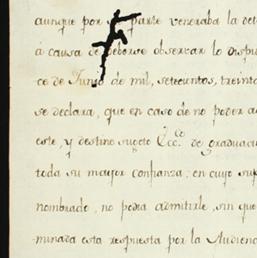 aunque por su parte veneraba la det
á causa de deberse observar lo dispu
ce de Junio de mil, setecientos, treinta
se declara, que en caso de no poder a
este, y destino sugeto Ecc.co de graduaci
toda su mayor confianza; en cuyo sup
nombrado, no podia admitirle, sin que
minada esta respuesta por la Audienc